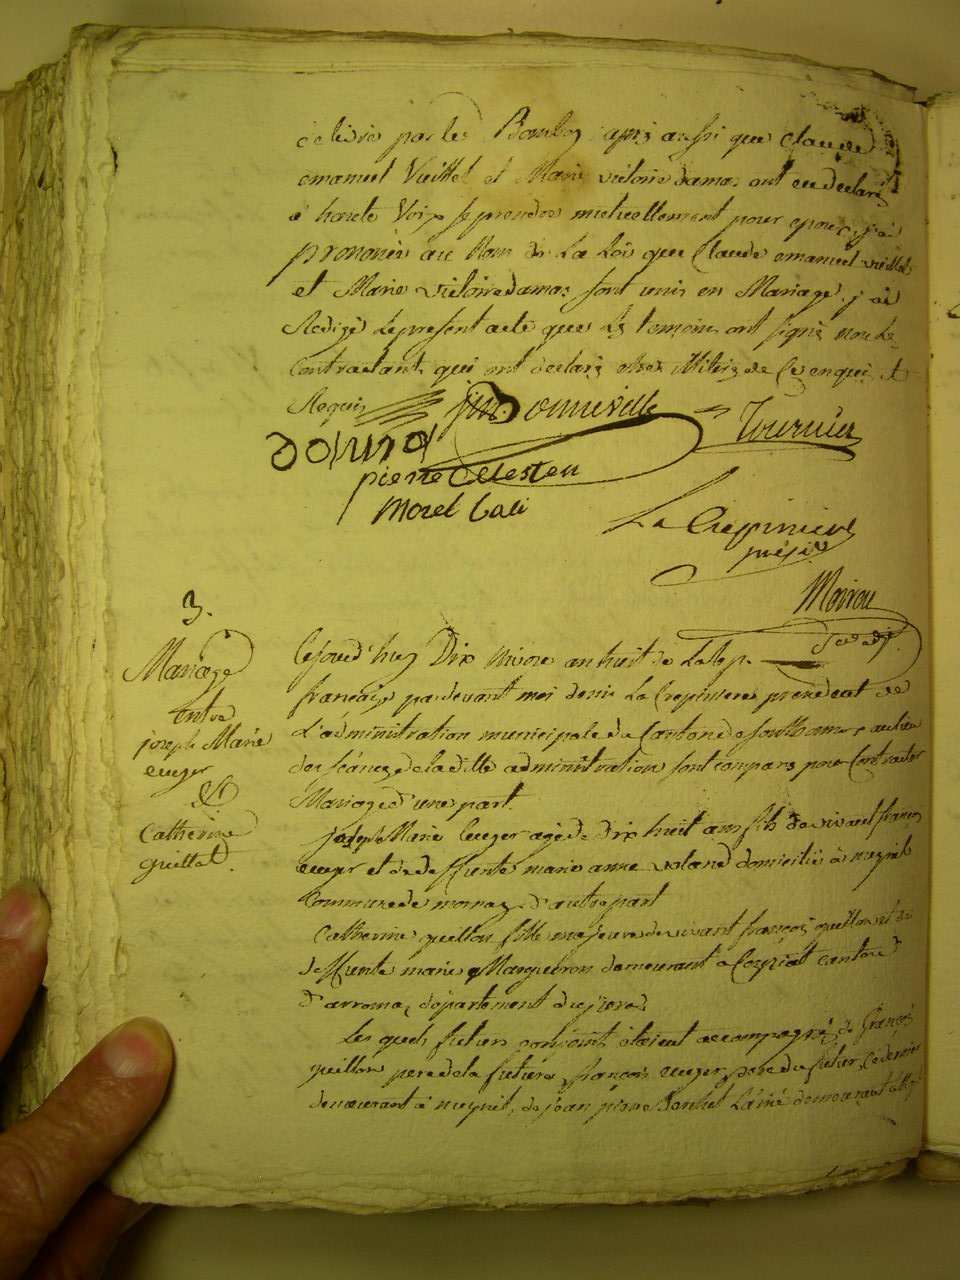 délivré par les Bomboy après aussi que Claude
emanuel Vieillet et Marie victoire damas ont eu declaré
a haute Voix se prendre mutuellement pour epoux, j'ai
prononcé au Nom de La Loi que Claude emanuel vieillet
et Marie victoire damas sont unis en Mariage, j'ai
Redigé le present acte que les temoins ont signé non le
Contractants qui ont declaré etre illitéré de ce enquis et
Requis
Donneville
Tournier
pierre Celesten
morel Cali
La Crepiniere
présid
Moirou
3.
Mariage
Entre
joseph Marie
euger
&
Catherine
guillot
Cejourd'huy Dix Nivose an huit de La Rep.
française pardevant moi denis La Crepiniere president de
L'administration municipale du Canton de au lieu
des séances de la ditte administration sont comparu pour Contracter
Mariage d'une part.
joseph Marie Euger agé de dix huit ans fils de vivant françois
euger et de deffunte marie anne voland domicilié à
Commune de mornay d'autre part
Catherine guillon fille majeure de vivant françois guillon et de
deffunte marie Margueron demeurant a Coyriat canton
d'arromas departement du jura
Les quels futurs conjoints étoient accompagnés de françois
guillon pere de la future, françois euger pere du futur, ce dernier
demeurant à de jean pierre Bonhet L'ainé demeurant